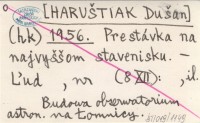 [HARUŠTIAK Dušan]
(hk) 1956. Prestávka na
najvyššom stavenisku. –
Ľud, nr (8 XII): , il.
Budowa obserwatorium
astron. na Łomnicy.